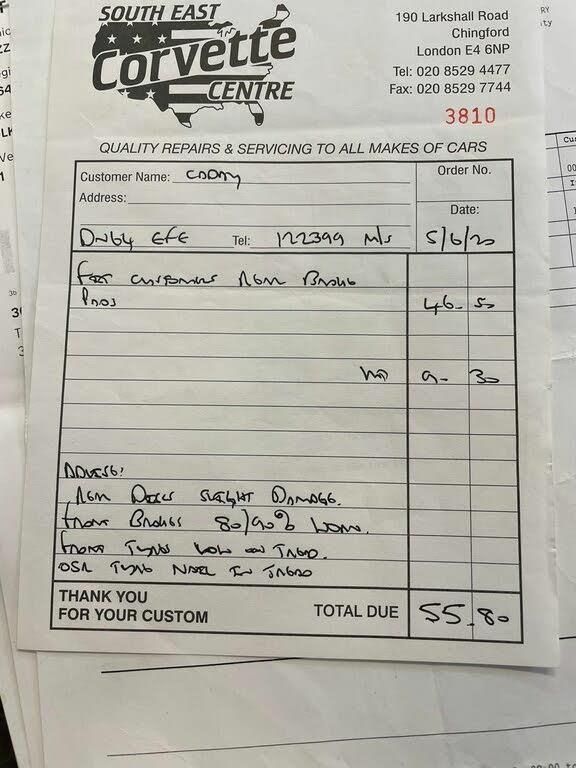 SOUTH EAST
IN
Corvette
CENTRE
190 Larkshall Road
Chingford
London E4 6NP
Tel: 020 8529 4477
Fax: 020 8529 7744
3810
QUALITY REPAIRS & SERVICING TO ALL MAKES OF CARS
Customer Name:
Order No.
Address:
Date:
DN64 EFE Tel: 122399 M/S 5/6/20
FIT CUSTOMERS REAR BRAKE
PADS 46 - 50
VAT 9 - 30
ADVISE:
REAR DISCS SLIGHT DAMAGE.
FRONT BRAKES 80/90% WORN.
FRONT TYRES LOW ON TREAD.
OSR TYRE NAIL IN TREAD
THANK YOU
FOR YOUR CUSTOM
TOTAL DUE 55 - 80